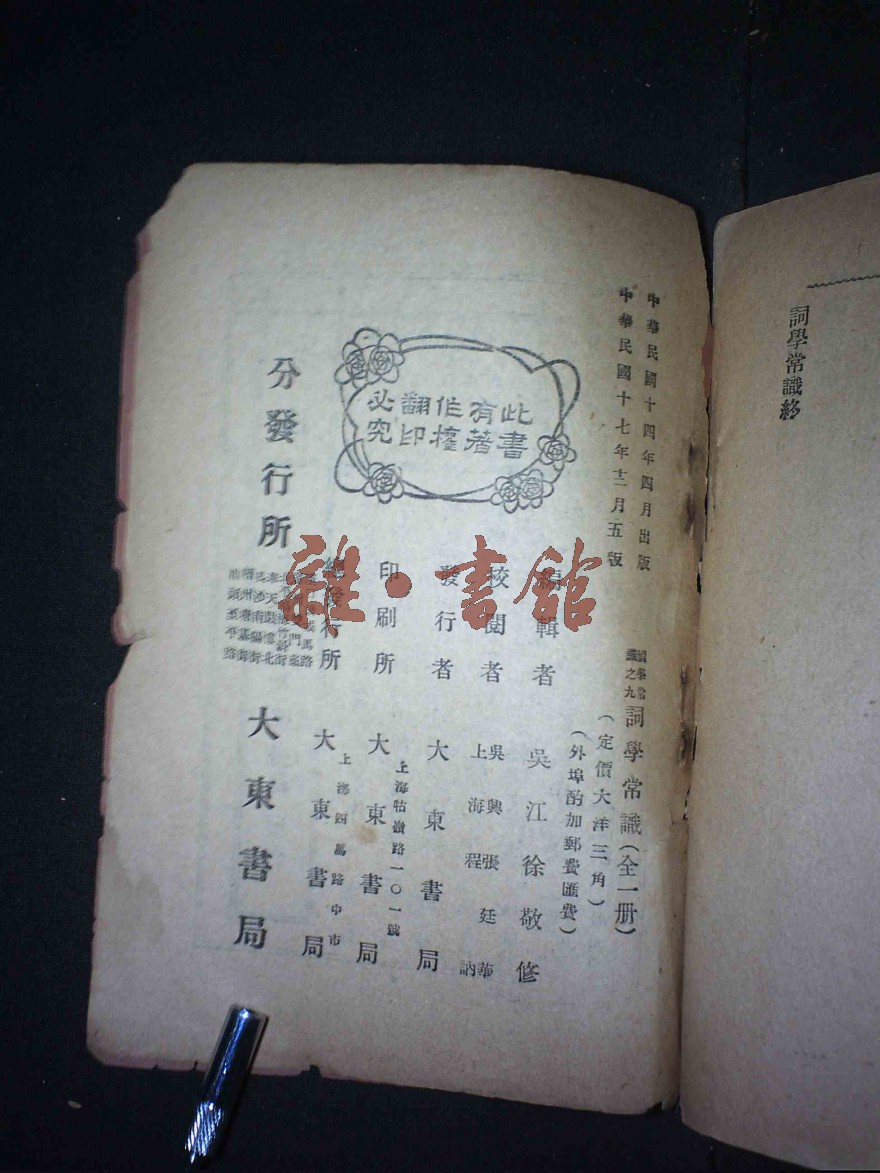 詞學常識終
中華民國十四年四月出版
中華民國十七年十二月五版
國學常識之九
詞學常識(全一册)
(定價大洋三角)
(外埠酌加郵費匯費)
編輯者 吳江徐敬修
校閱者 吳興張廷華
上海程 訥
發行者 大東書局
印刷所 上海牯嶺路一〇一號
大東書局
總發行所 上海四馬路中市
大東書局
分發行所
大東書局
此書有著作權翻印必究
雜·書館